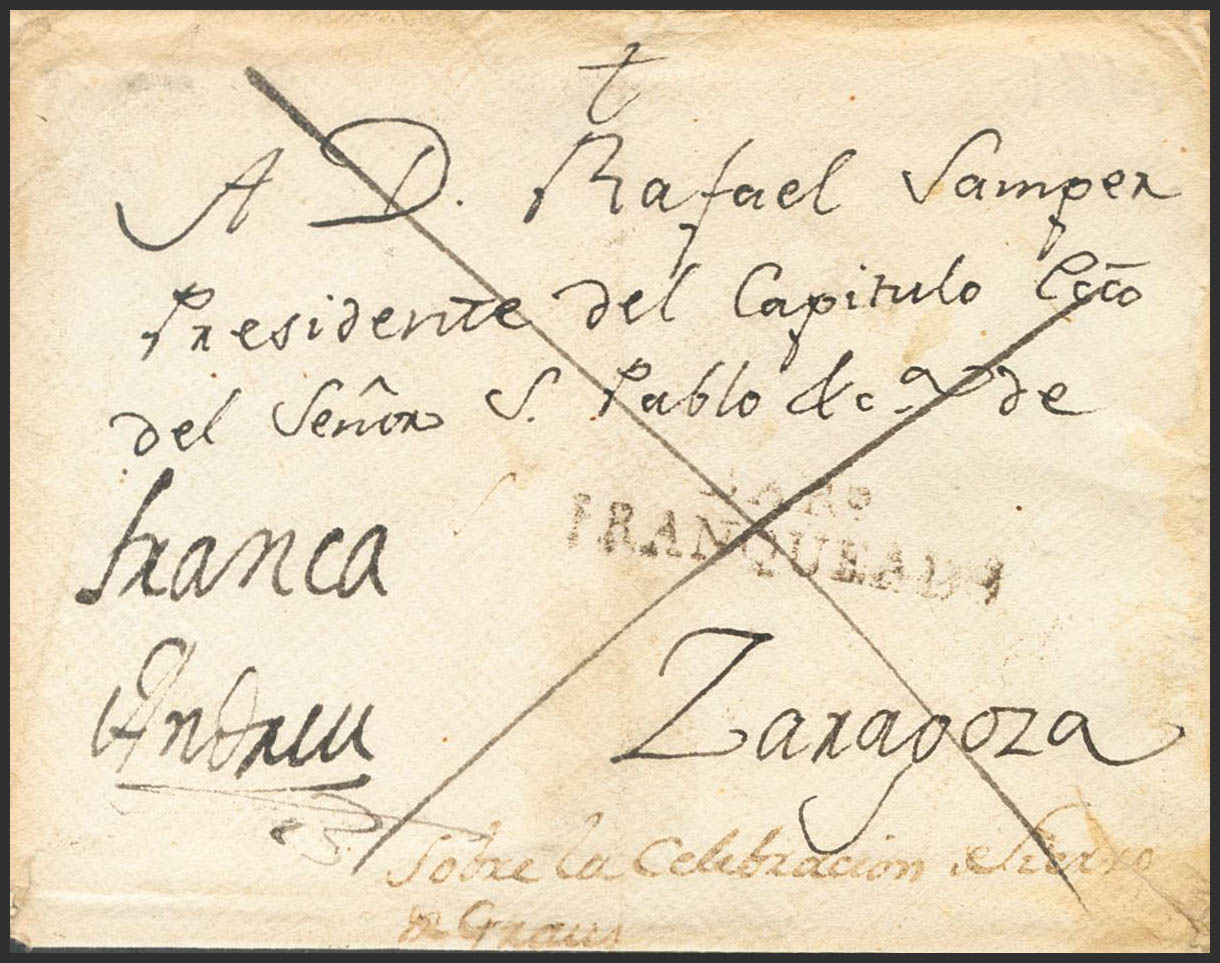 †
A D. Rafael Samper
Presidente del Capitulo Ecc̄o
del Señor S. Pablo &c.ª de
franca
FRANQUEADO
Andreu
Zaragoza
Sobre la Celebracion de
de Graus